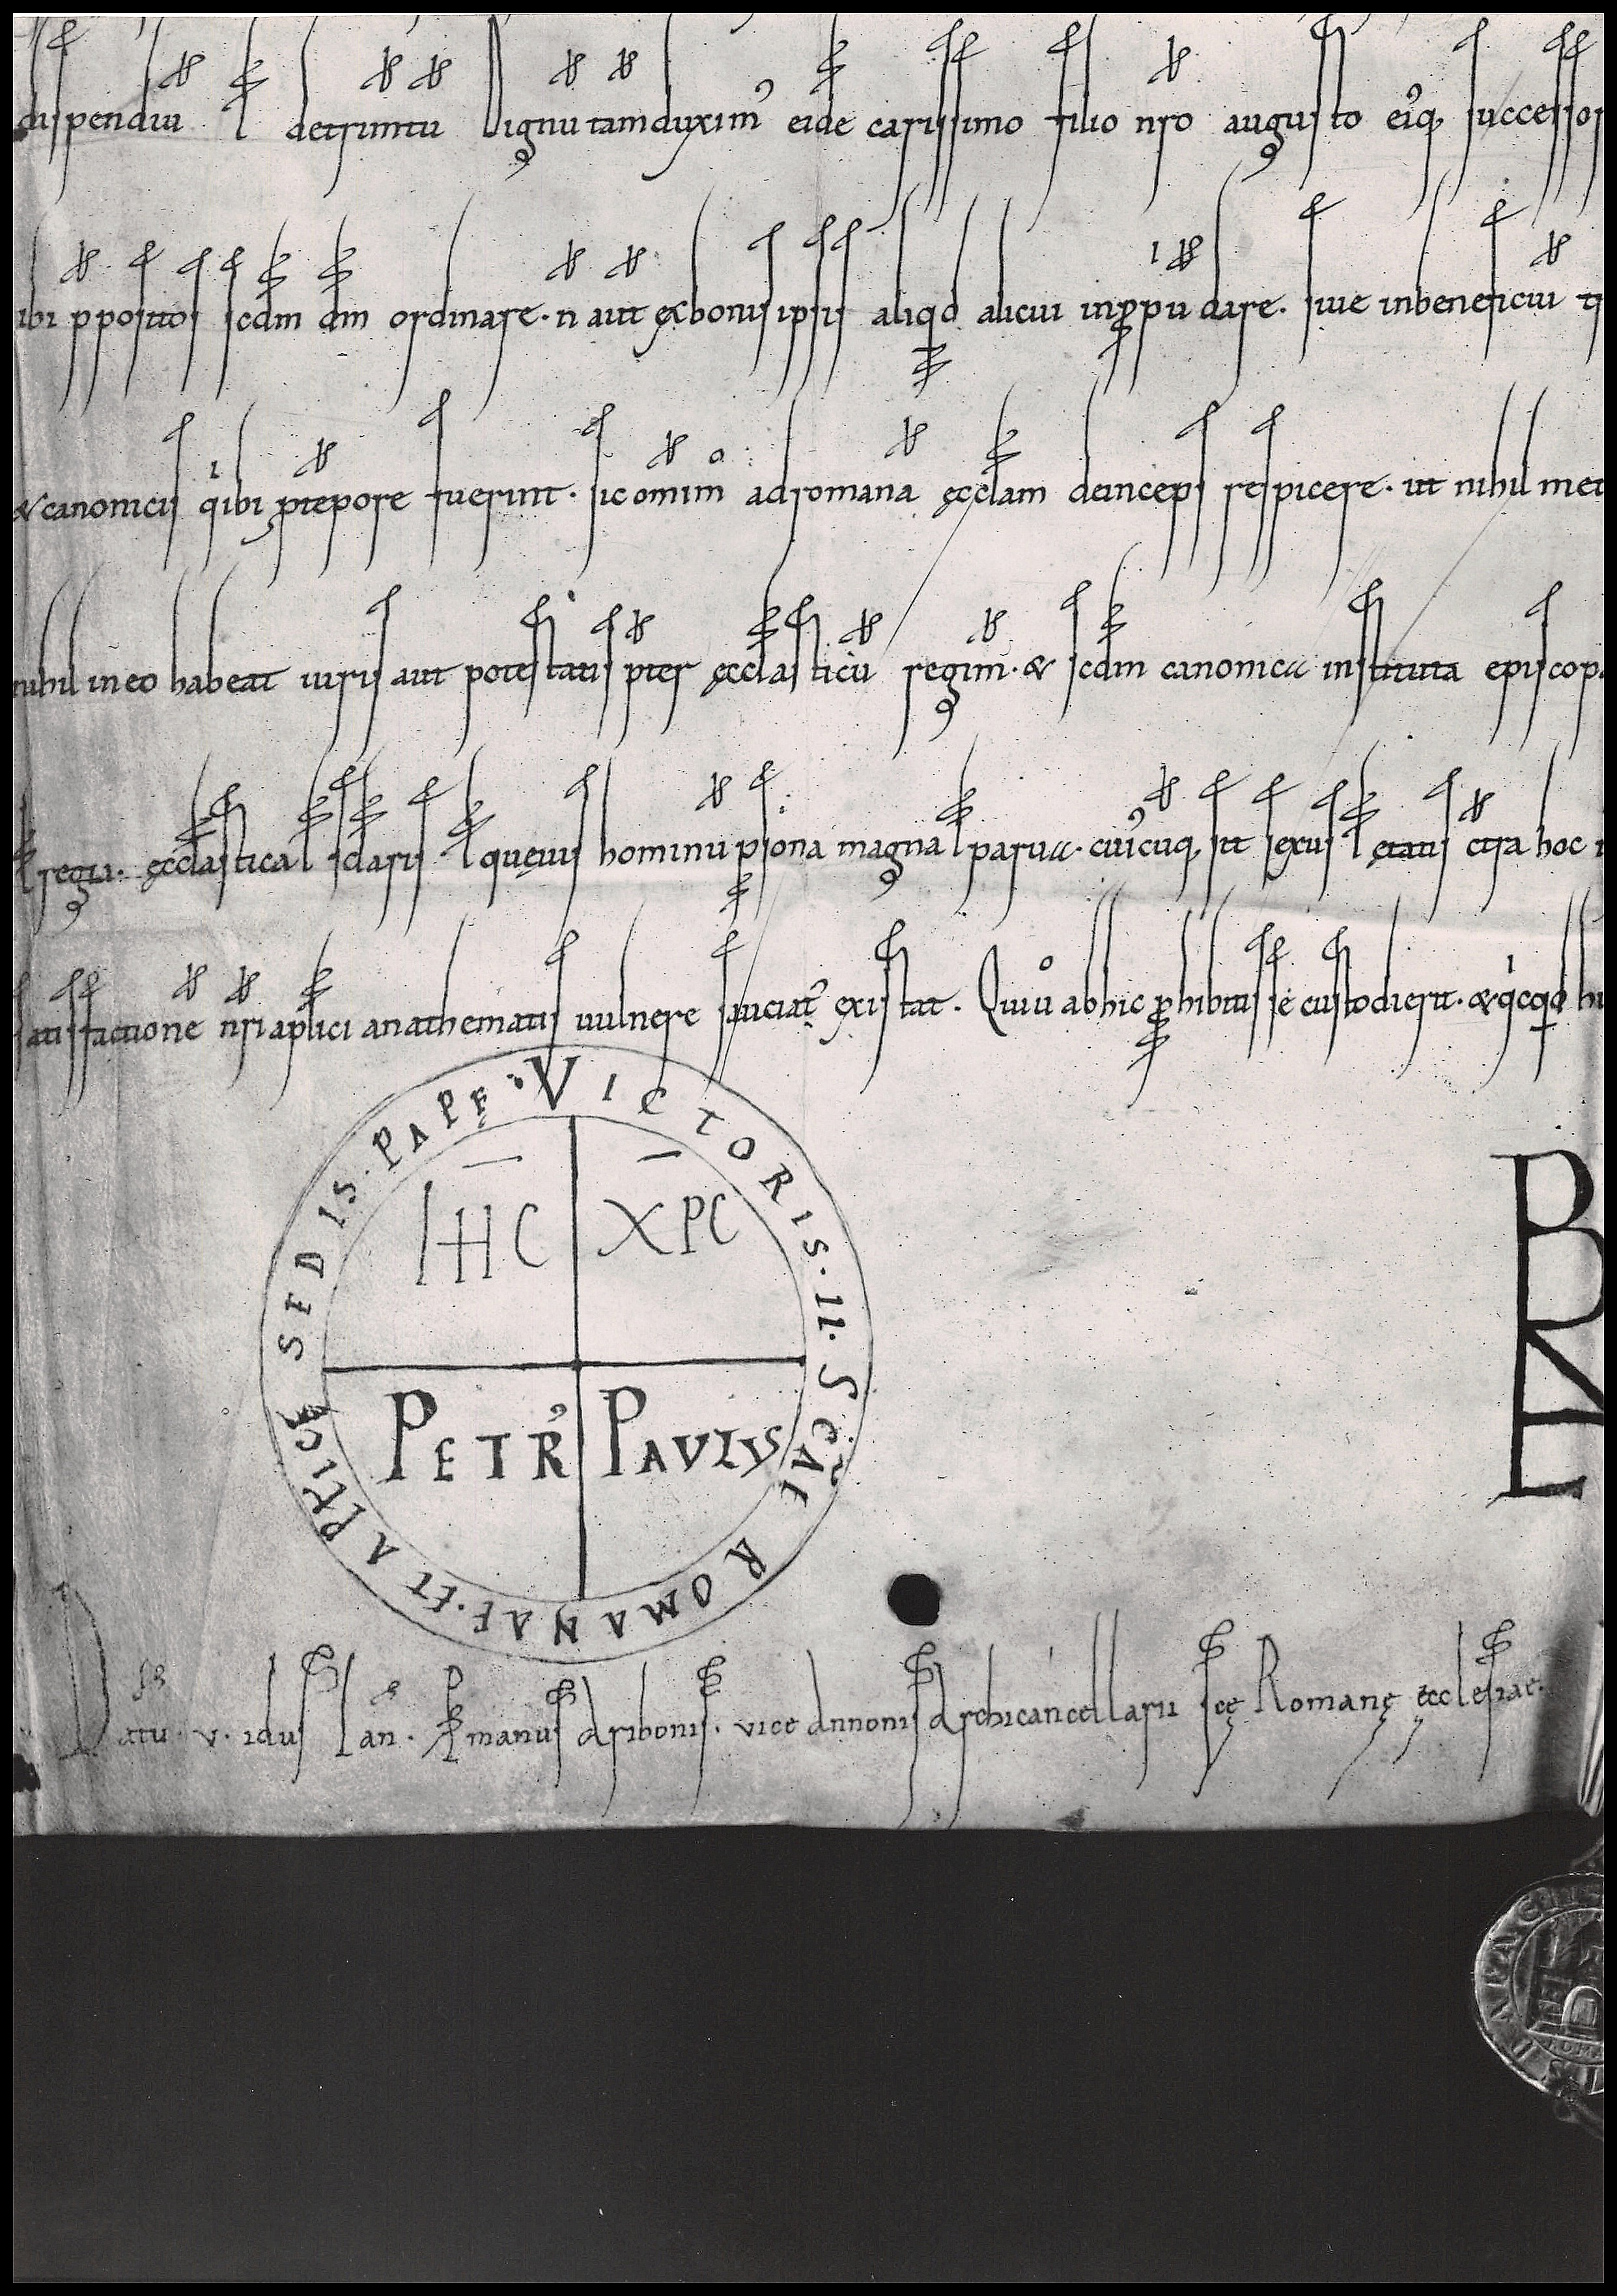 dispendiu l detrimtu Dignu tam duxim᾽ eide carissimo filio nro augusto ei᾽q, successor
ibi ppositos scdm dm ordinare. n aut ex bonis ipsis aliqd alicui in ppu dare. sive in beneficiu
& canonicis q ibi ptepore fuerint. sic omim ad romana ęcclam deinceps respicere. ut nihil
nihil in eo habeat iuris aut potestatis pter ęcclasticu regim. & scdm canonica instituta episcop
l regia. ęcclastica l sclaris. l quevis hominu psona magna l parva. cui᾽cuq, sit sexus l ętatis ctra hoc
satisfactione nri aplici anathematis vulnere sauciat᾽ existat. Qui ů ab hic phibitis se custodierit. & qcqd
VICTORIS. II. SCAE ROMANAE. ET APLICĘ SEDIS. PAPĘ.
IHC XPC
PETR᾽ PAULUS
Datu. v. idus Ian. p manus Aribonis. vice Annonis Archicancellarii scę Romanę ecclesiae.